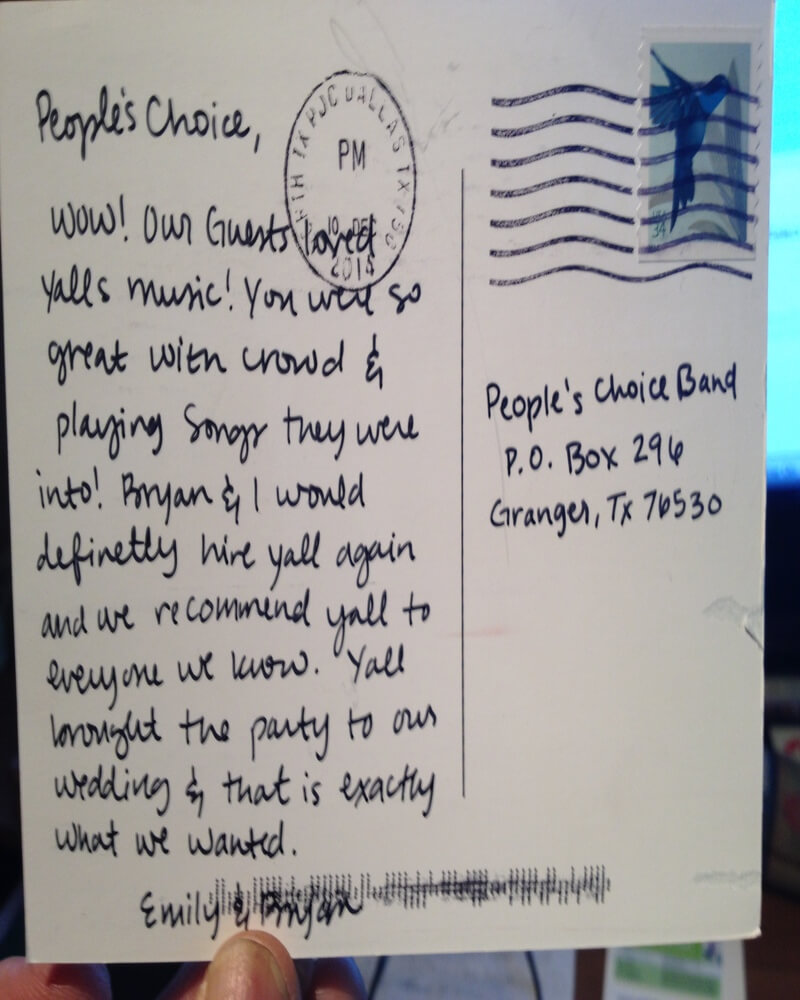 People's Choice,
WOW! Our Guests loved
yalls music! You were so
great with crowd &
playing Songs they were
into! Bryan & I would
definetly hire yall again
and we recommend yall to
everyone we know. Yall
brought the party to our
wedding & that is exactly
what we wanted.
Emily & Bryan
TX PJC DALLAS TX 750
PM
10 DEC
2014
34
People's Choice Band
P.O. Box 296
Granger, Tx 76530